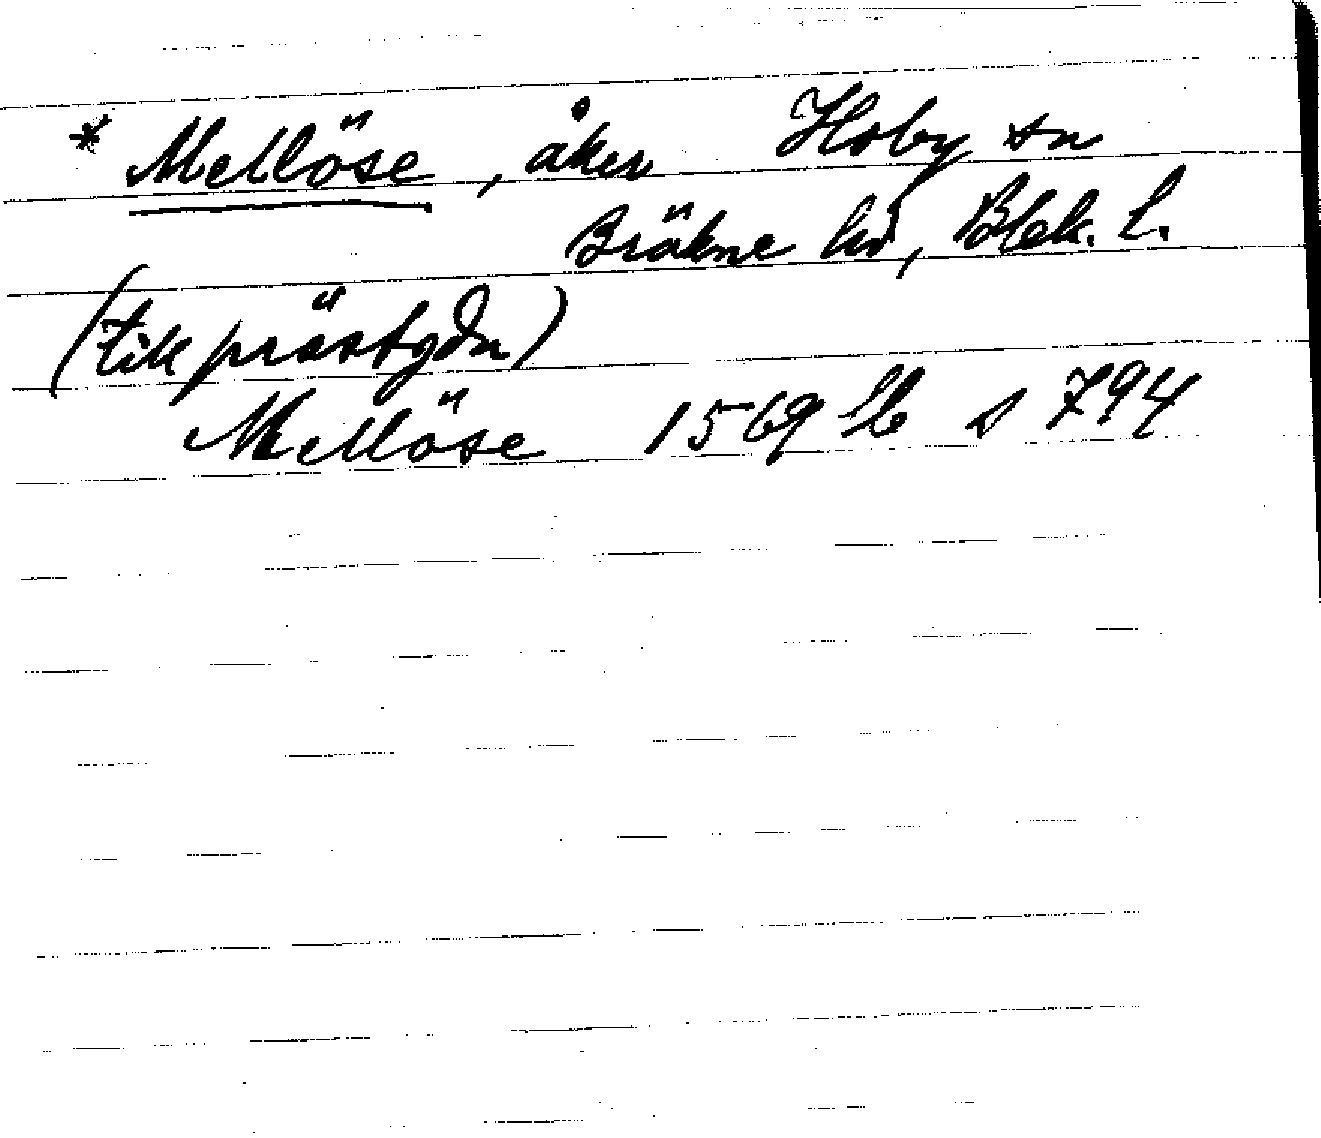 * Mellöse, åker Hoby sn
Bräkne hd, Blek. l.
(tillk prästgdn)
Mellöse 1569 lb s 794